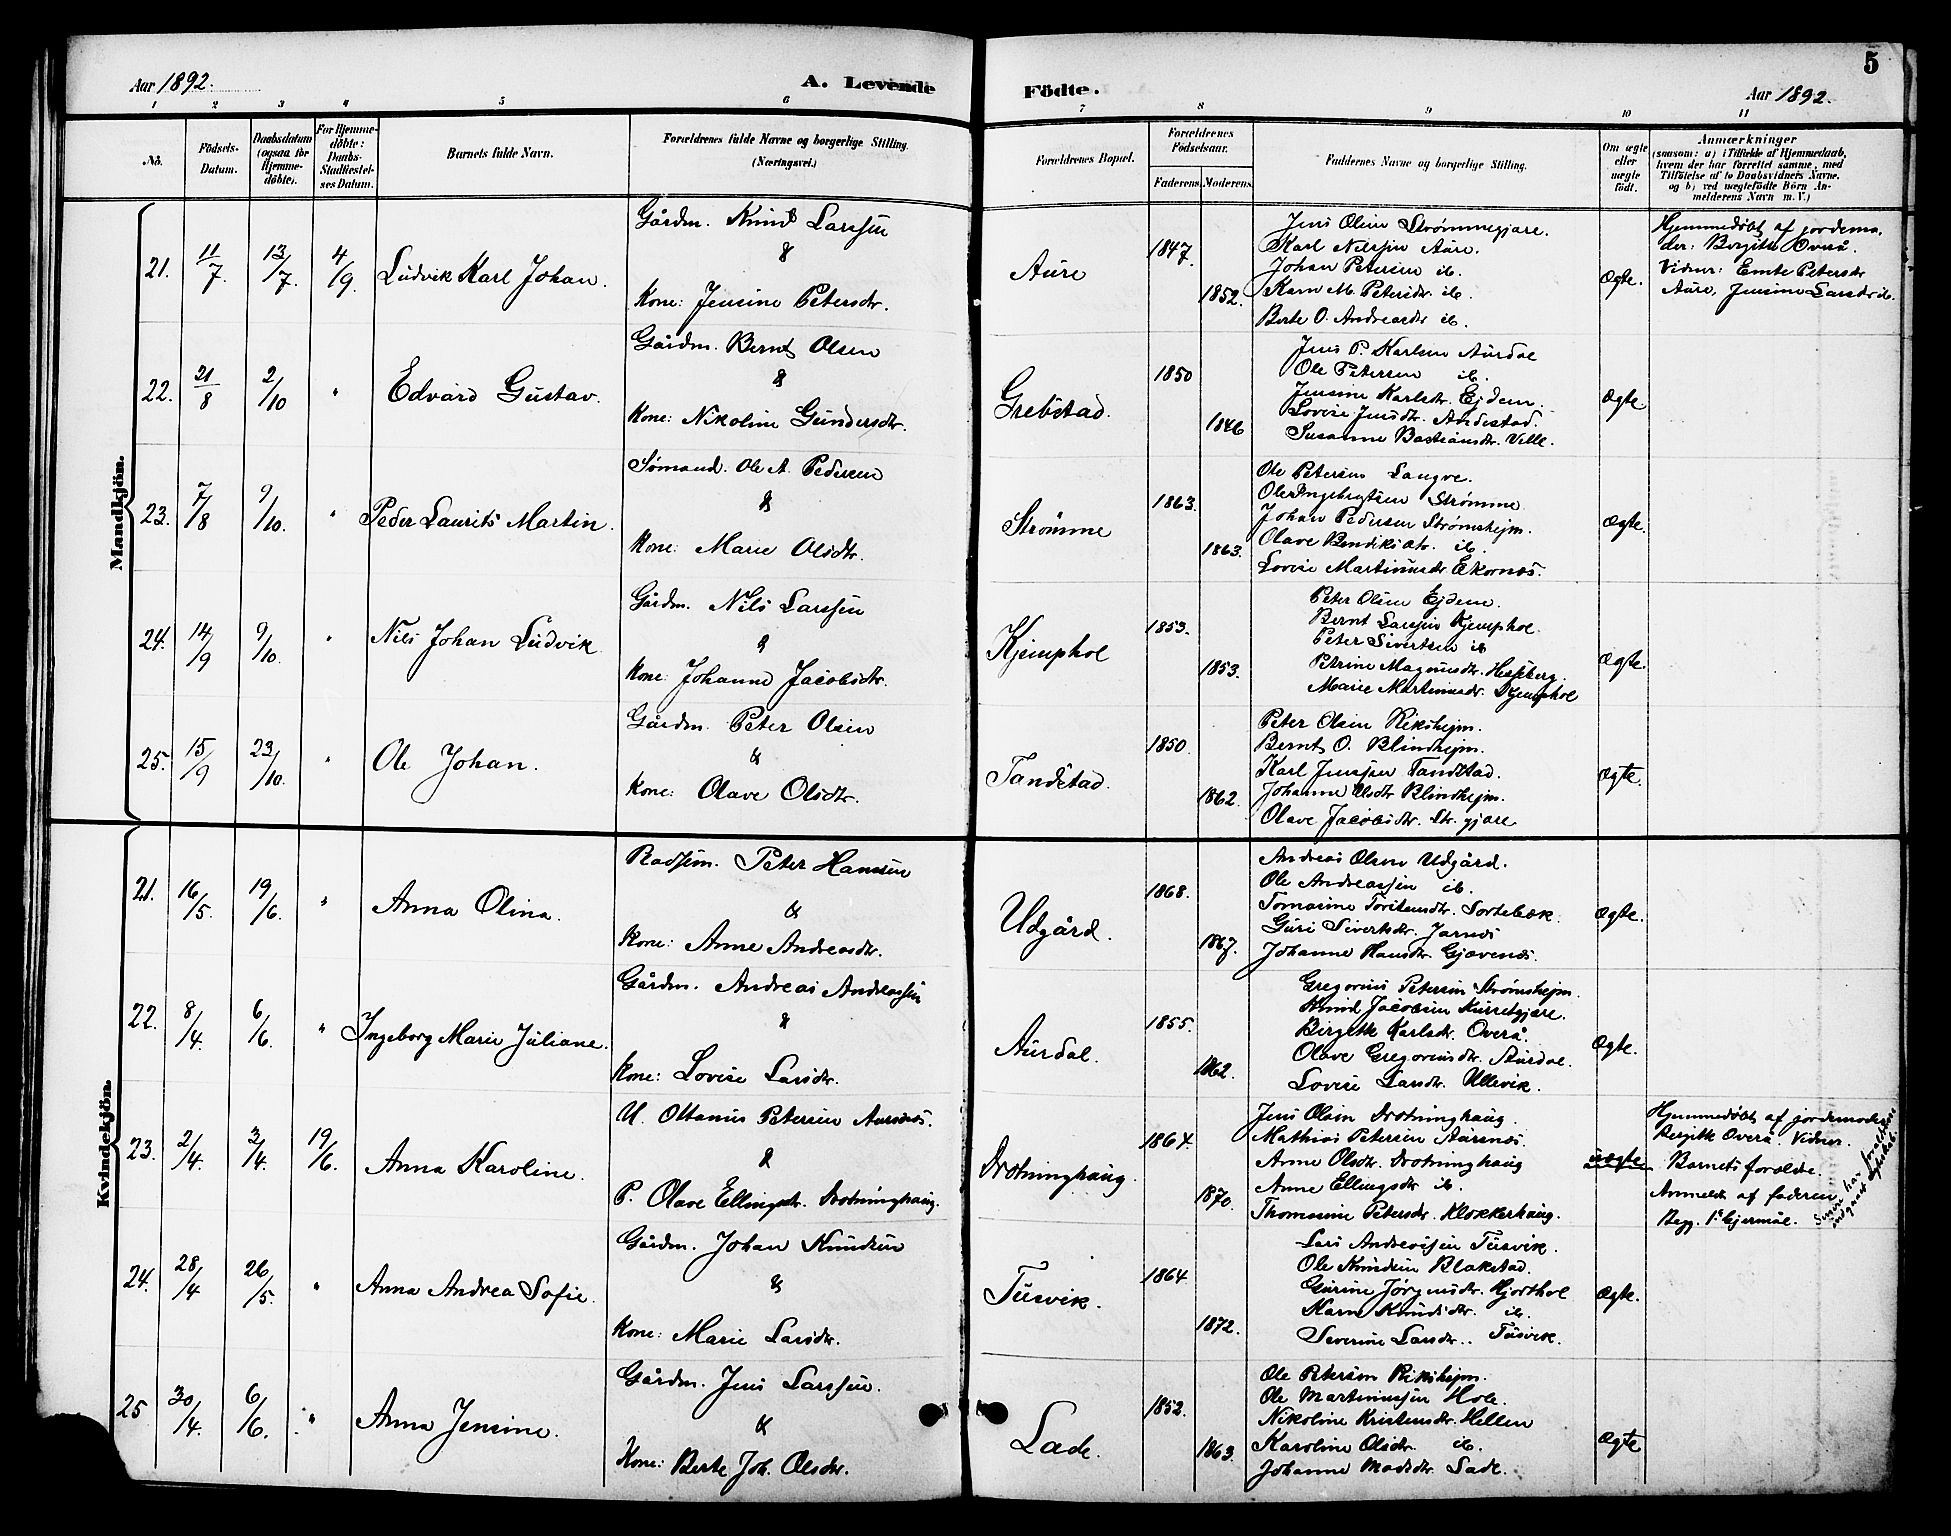 5
Aar 1892.
A. Levende
Födte.
Aar 1892.
1 2 3 4 5 6 7 8 9 10 11
No. Födsels-Datum. Daabsdatum (ogsaa for Hjemme-döbte). For Hjemme-döbte: Daabs-Stadfæstel-ses Datum. Barnets fulde Navn. Forældrenes fulde Navne og borgerlige Stilling. (Næringsvei.) Forældrenes Bopæl. Forældrenes Födselsaar. Faderens. Moderens. Faddernes Navne og borgerlige Stilling. Om ægte eller uægte födt. Anmærkninger
(saasom: a) i Tilfælde af Hjemmedaab,
hvem der har forrettet samme, med
Tilföielse af to Daabsvidners Navne.
og b) ved uægtefödte Börn An-
melderens Navn m. V.)
Mandkjön.
21. 11/7. 13/7. 4/9. Ludvik Karl Johan.
Gårdm. Knud Larssen
&
Kone: Jensine Petersdtr.
Aure
1847.
1852.
Jens Olsen Strømmegjære.
Karl Nilssen Aure.
Johan Petersen ib.
Karn M. Petersdtr. ib.
Berte O. Andreasdtr ib.
Ægte.
Hjemmedøbt af jordemo-
der: Bergitte Overå.
Vidner: Emte Petersdtr
Aure, Jensine Larsdtr ib.
22. 21/8 2/10 " Edvard Gustav.
Gårdm. Bernt Olsen
&
Kone: Nikoline Gundersdtr.
Grebstad.
1850
1846
Jens P. Karlsen Aurdal
Ole Petersen ib.
Jensine Karlsdtr. Ejdem.
Lovise Jensdtr. Andestad.
Susanne Bastiansdtr. Velle.
Ægte
23. 7/8 9/10. " Peder Laurits Martin.
Sømand. Ole A. Pedersen
&
Kone: Marie Olsdtr.
Strømme
1863.
1863.
Ole Petersen Langve.
Ole Ingebrigtsen Strømme.
Johan Pedersen Strømshejm.
Olave Bendiksdtr. ib.
Lovise Martinusdtr Ekornæs.
Ægte.
24. 14/9 9/10. " Nils Johan Ludvik
Gårdm. Nils Larssen
&
Kone: Johanne Jacobsdtr.
Kjemphol
1853.
1853.
Peter Olsen Ejdem.
Bernt Larssen Kjemphol.
Peter Sivertsen ib
Petrine Magnusdtr. Hessberg.
Marie Martinusdtr. Kjemphol
Ægte.
25. 15/9 23/10. " Ole Johan.
Gårdm. Peter Olsen
&
Kone: Olave Olsdtr.
Tandstad.
1850.
1862.
Peter Olsen Rikshejm.
Bernt O. Blindhejm.
Karl Jenssen Tandstad.
Johanne Olsdtr Blindhejm.
Olave Jacobsdtr. Str. gjære
Ægte.
Kvindekjön.
21. 16/5. 19/6. " Anna Olina.
Peter Hanssen
&
Kone: Anne Andreasdtr.
Udgård.
1868.
1867.
Andreas Olsen Udgård.
Ole Andreassen ib.
Tomasine Torstensdtr. Sortebæk.
Guri Sivertsdtr. Jarnes
Johanne Hansdtr. Gjævenes.
Ægte.
22. 8/4. 6/6. " Ingeborg Marie Juliane.
Gårdm. Andreas Andreassen
&
Kone: Lovise Larsdtr.
Aurdal.
1855.
1862.
Gregorius Petersen Strømshejm.
Knud Jacobsen Kursetgjære.
Birgitte Karlsdtr. Overå.
Olave Gregoriusdtr. Aurdal.
Lovise Larsdtr. Ullevik.
Ægte.
23. 2/4. 3/4. 19/6. Anna Karoline.
U. Ottanius Petersen Aursnes.
&
P. Olave Ellingsdtr. Drotninghaug.
Drotninghaug.
1864.
1870.
Jens Olsen Drotninghaug.
Mathias Petersen Aursnes.
Anne Olsdtr. Drotninghaug
Anne Ellingsdtr ib.
Thomasine Petersdtr. Klokkerhaug.
uægte
Hjemmedøbt af jordemoder
Bergitte Overå. Vidner.
Barnets forældre.
Anmeldt af faderen
Begg. 1ste lejermål.
Senere har forældrene indgaaet ægteskab.
24. 28/4 26/5. " Anna Andrea Sofie.
Gårdm. Johan Knudsen
&
Kone: Marie Larsdtr.
Tusvik.
1864
1872.
Lars Andreassen Tusvik.
Ole Knudsen Blakstad.
Gurine Jørgensdtr. Hjorthol
Karn Knudsdtr. ib.
Severine Larsdtr. Tusvik.
Ægte.
25 30/4. 6/6. " Anna Jensine.
Gårdm. Jens Larssen.
&
Kone: Berte Joh. Olsdtr.
Lade.
1852.
1863.
Ole Petersen Rikshejm.
Ole Martinussen Hole.
Nikoline Kristensdtr. Hellen
Karoline Olsdtr. ib.
Johanne Madsdtr. Lade.
Ægte